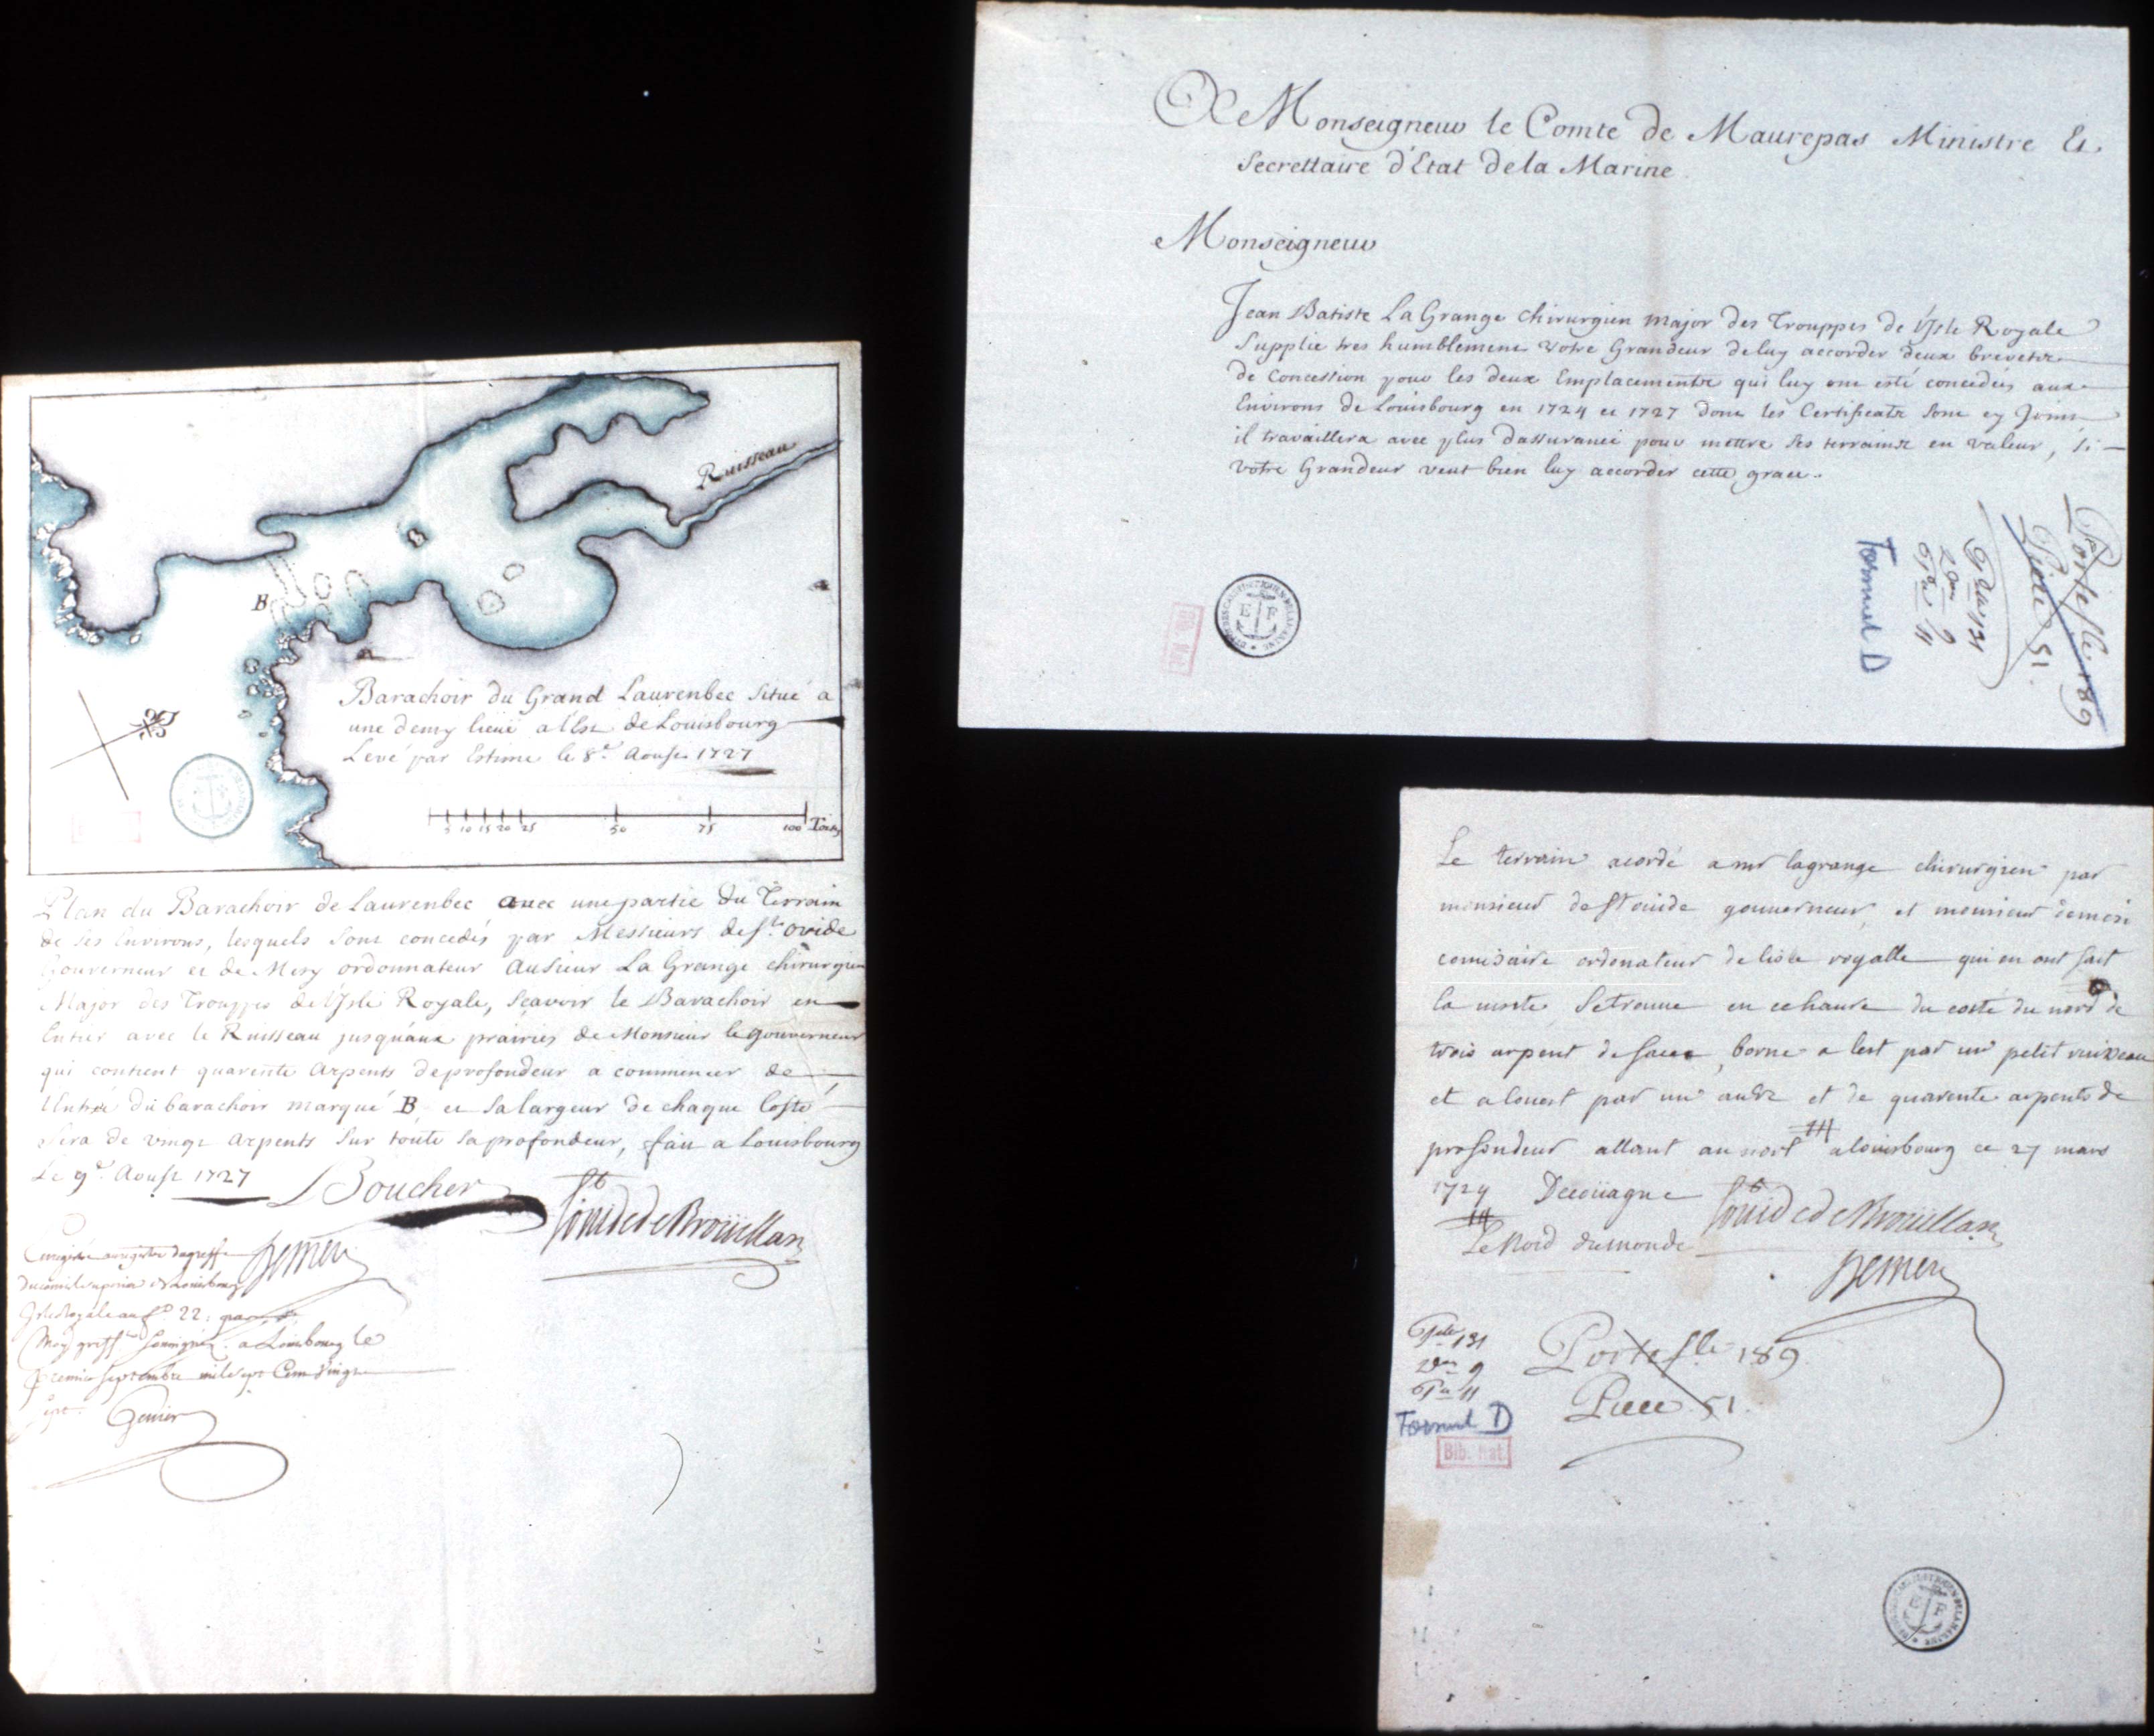 Ruisseau
B
Barachoir du Grand Laurenbec Situé a
une demy lieüe a l'Est de Louisbourg
Levé par Estime le 8.e Aoust 1727
5 10 15 20 25 50 75 100 Toises
Plan du Barachoir de Laurenbec avec une partie du Terrain
de Ses Environs, lesquels Sont concedés par Messieurs de St. ovide
Gouverneur et de Mesy ordonnateur Au Sieur La Grange chirurgien
Major des Trouppes de l'Isle Royale, Sçavoir le Barachoir en
Entier avec le Ruisseau jusqu'aux prairies de Monsieur le gouverneur
qui contient quarente Arpents de profondeur a commencer de
l'Entrée du barachoir marqué B, et Sa largeur de chaque Costé
Sera de vingt Arpents Sur toute Sa profondeur, fait a Louisbourg
Le 9.e Aoust 1727
Boucher
St ovide de Broüillan
Enregistré au registre du greffe
du conseil superieur de Louisbourg
Isle Royale au fo. 22, par
Moy greffier Soussigné a Louisbourg le
premier Septembre mil Sept Cent Vingt
Sept
DeMesy
A Monseigneur le Comte de Maurepas Ministre Et
Secrettaire d'Etat de la Marine
Monseigneur
Jean Batiste La Grange chirurgien major des Trouppes de l'Isle Royale
Supplie tres humblement Votre Grandeur de luy accorder deux brevets
de Concession pour les deux Emplacements qui luy ont esté concedés aux
Environs de Louisbourg en 1724 et 1727 dont les Certificats Sont cy Joints
il travaillera avec plus d'assurance pour mettre Ses terrains en valeur, Si
votre Grandeur veut bien luy accorder cette grace.
Portefle. 189
Piece 51.
131
9
11
D
E F
Bib. Nat.
Le terrain acordé a mr lagrange chirurgien par
monsieur de St ovide gouverneur et monsieur demesi
comisaire ordonateur de lisle royalle qui en ont fait
la visite Se trouve en ce havre du costé du nord de
trois arpent de face, borné a lest par un petit ruisseau
et a louest par un autre et de quarente arpents de
profondeur allant au nort a louisbourg ce 27 mars
1724 Decoüagne St ovide de Broüillan
Le Nord du monde
DeMesy
131
9
11
D
Portefle 189
Piece 51.
Bib. Nat.